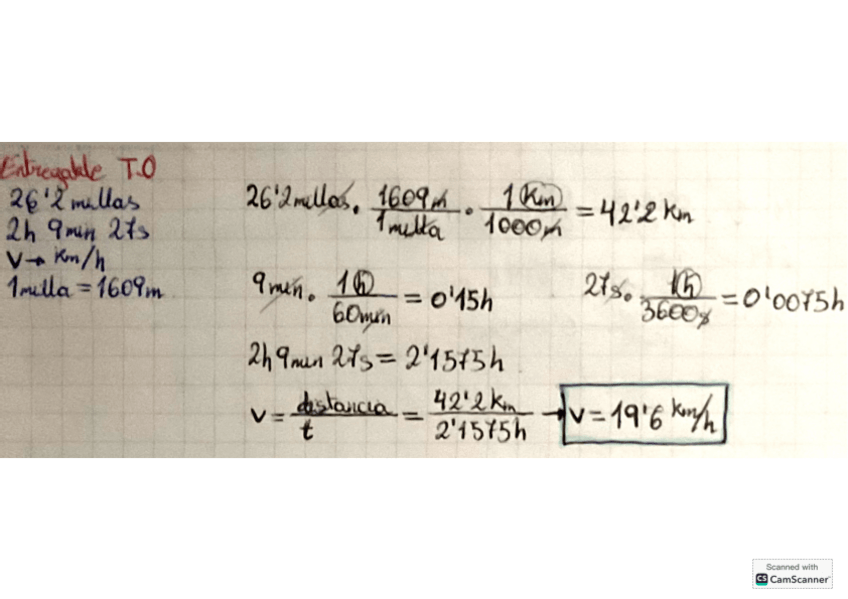 Entregable T.0
26'2 millas
2h 9min 27s
V→ Km/h
1milla = 1609m
26'2millas · 1609m/1milla · 1Km/1000m = 42'2 Km
9min · 1h/60min = 0'15h
27s · 1h/3600s = 0'0075h
2h 9min 27s = 2'1575h
V = distancia/t = 42'2 Km/2'1575h → V = 19'6 Km/h
Scanned with
CS CamScanner